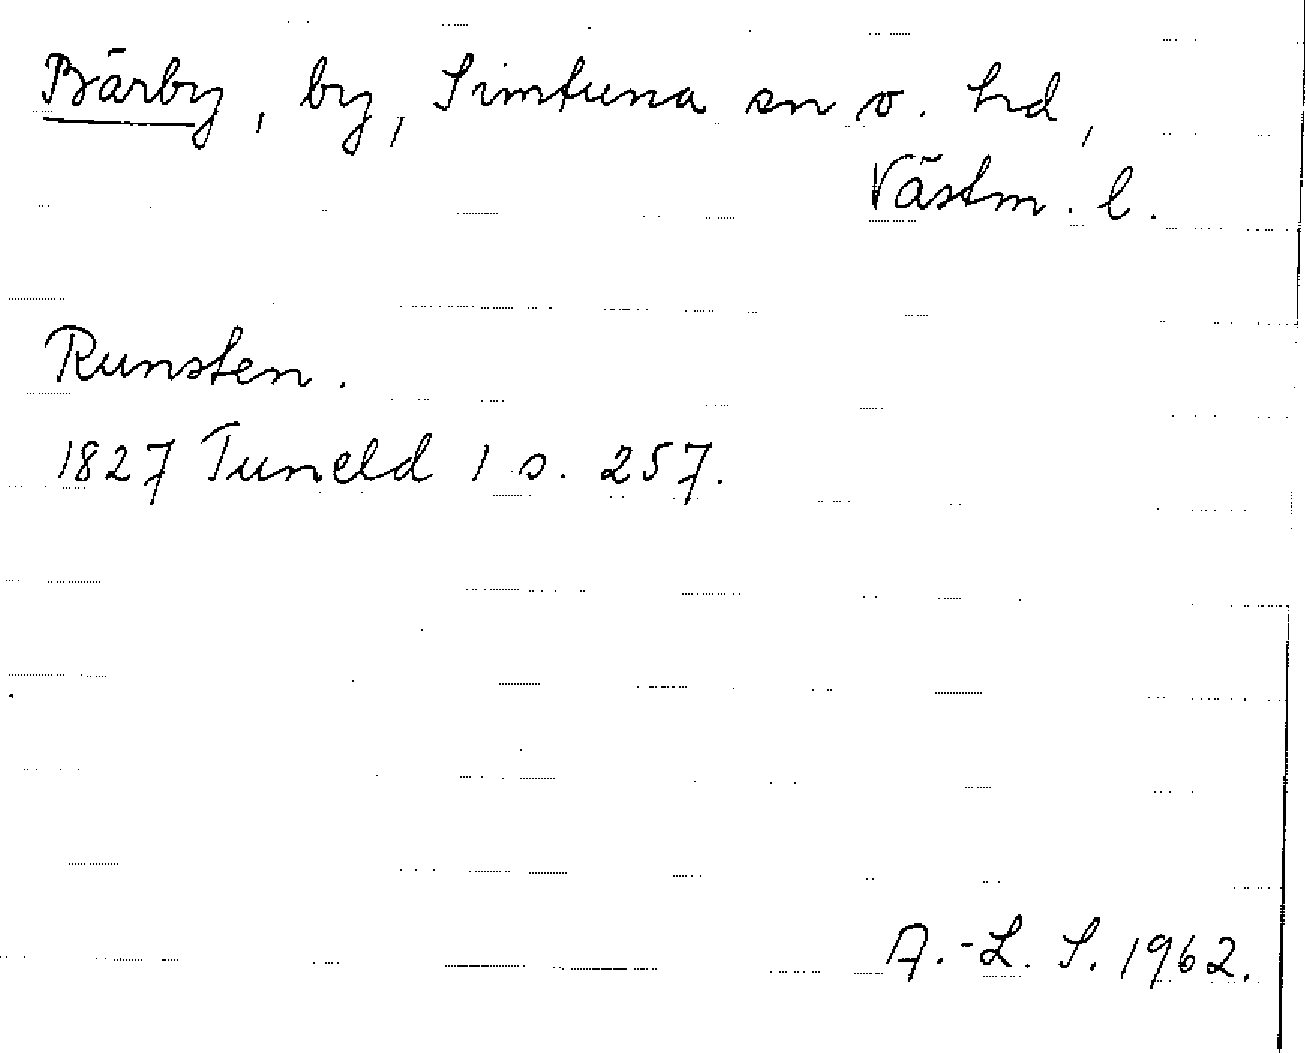 Bärby, by, Simtuna sn o. hd,
Västm. l.
Runsten.
1827 Tuneld 1 s. 257.
A.-L. S. 1962.